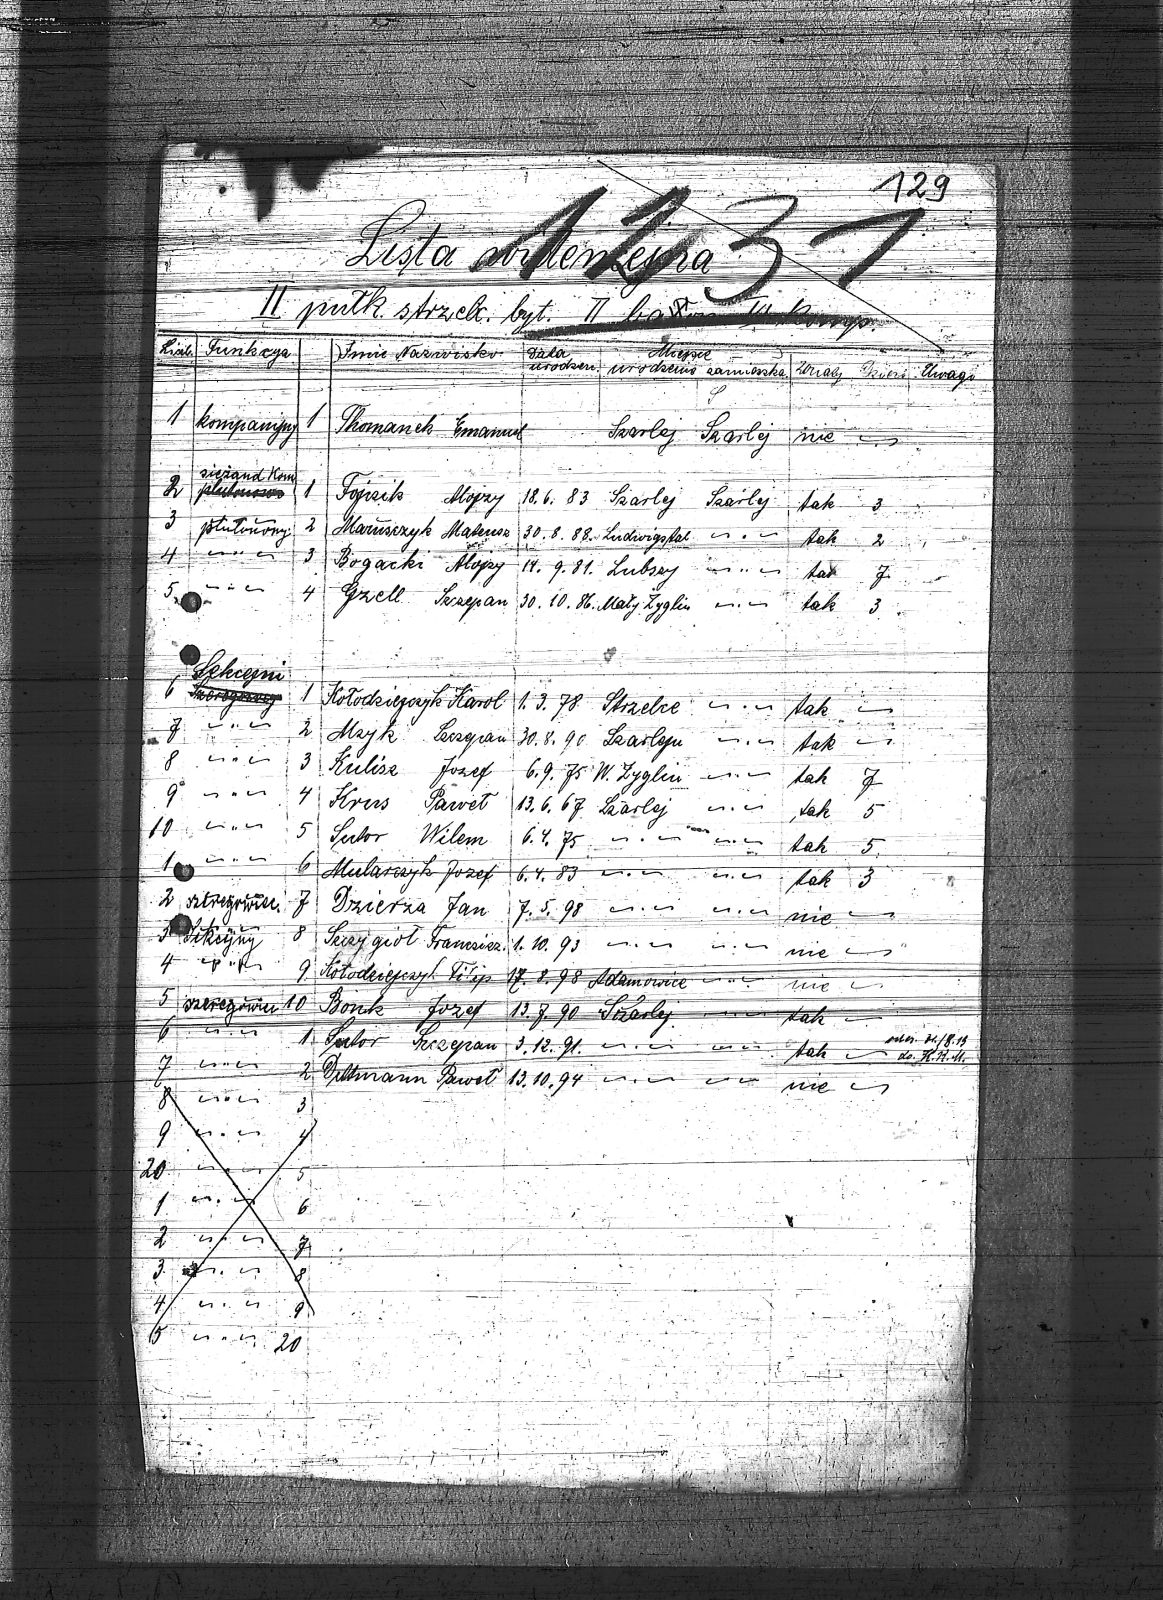 129
1131
Lista ewidencyjna
II pułk. strzelc. byt. II baon VI. komp.
Liczb. Funkcya Imie Nazwisko Data urodzen. Miejsce urodzenia zamieszka. Żonaty Dzieci Uwagi
1 kompanijny 1 Thomanek Emanuel Szarlej Szarlej nie —
sierżand Kom
2 plutonowo 1 Fojcik Alojzy 18.6.83 Szarlej Szarlej tak 3
3 plutonowy 2 Maruszczyk Mateusz 30.8.88. Ludwigstal " tak 2
4 " 3 Bogacki Alojzy 14.9.81. Lubszy " tak 7
5 " 4 Gzell Szczepan 30.10.86. Mały Zyglin " tak 3
Sekcyjni
6 Szeregowcy 1 Kołodziejczyk Karol 1.3.78 Strzelce " tak —
7 " 2 Mzyk Szczepan 30.8.90 Szarleju " tak —
8 " 3 Kulisz Jozef 6.9.75 W. Zyglin " tak 7
9 " 4 Krus Paweł 13.6.67 Szarlej " tak 5
10 " 5 Sutor Wilem 6.4.75 " " tak 5
1 " 6 Mularczyk Jozef 6.4.83 " " tak 3
2 szeregowiec. 7 Dzierza Jan 7.5.98 " " nie —
3 Sekcyjny 8 Szczygioł Francisz. 1.10.93 " " nie —
4 " 9 Kołodziejczyk Filip 17.8.98 Adamowice " nie —
5 szeregowiec 10 Bonk Jozef 13.7.90 Szarlej " tak —
6 " 1 Sutor Szczepan 3.12.91. " " tak — do. K.K.M.
7 " 2 Dittmann Paweł 13.10.94 " " nie —
8 " 3
9 " 4
20 " 5
1 " 6
2 " 7
3 " 8
4 " 9
5 " 20